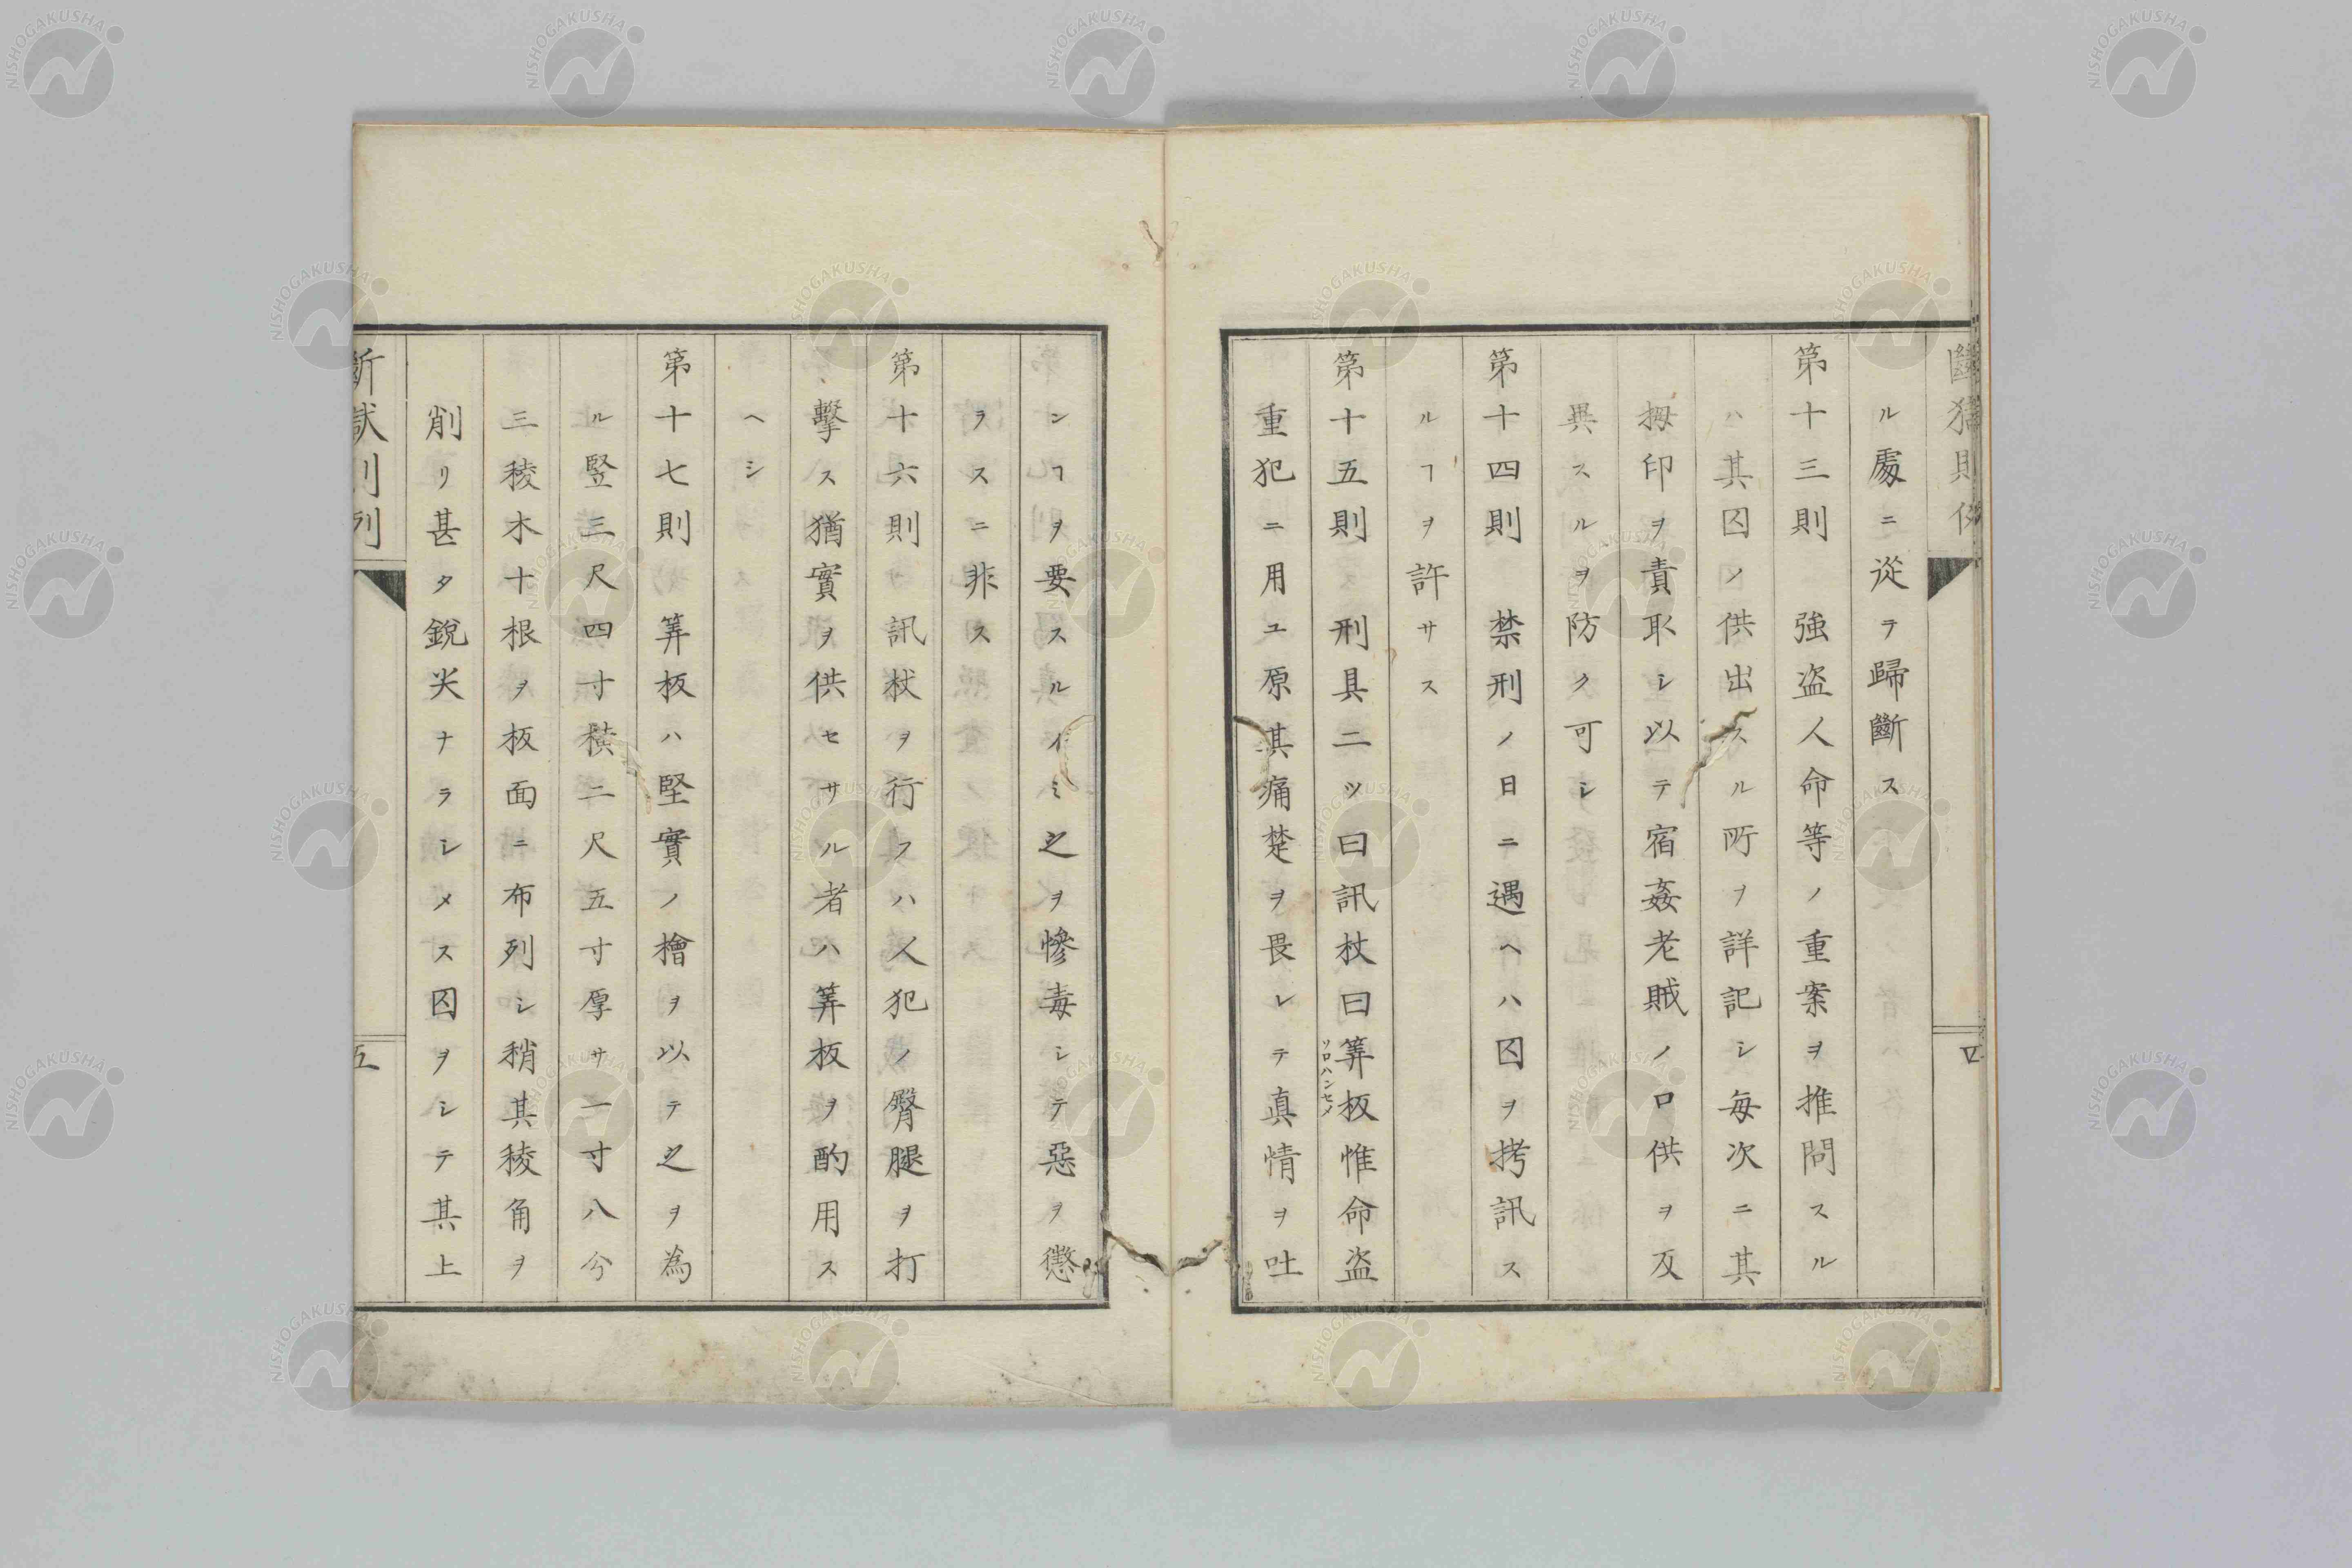 ル處ニ從テ歸斷ス
第十三則 強盗人命等ノ重案ヲ推問スル
ハ其囚ノ供出スル所ヲ詳記シ毎次ニ其
拇印ヲ責取シ以テ宿姦老賊ノ口供ヲ反
異スルヲ防ク可シ
第十四則 禁刑ノ日ニ遇ヘハ囚ヲ拷訊ス
ルヿヲ許サス
第十五則 刑具二ツ曰訊杖曰筭板惟命盗
ソロハンセメ
重犯ニ用ユ原其痛楚ヲ畏レテ真情ヲ吐
四
ンヿヲ要スルノミ之ヲ慘毒シテ惡ヲ懲
ラスニ非ス
第十六則 訊杖ヲ行フハ人犯ノ臀腿ヲ打
擊ス猶實ヲ供セサル者ハ筭板ヲ酌用ス
ヘシ
第十七則 筭板ハ堅實ノ檜ヲ以テ之ヲ為
ル豎三尺四寸橫二尺五寸厚サ一寸八分
三稜木十根ヲ板面ニ布列シ稍其稜角ヲ
削リ甚タ銳尖ナラシメス囚ヲシテ其上
斷獄則例
五
NISHOGAKUSHA